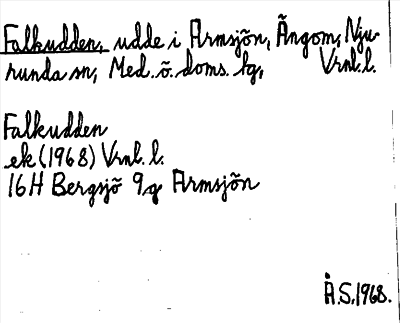 Falkudden, udde i Armsjön, Ängom, Nju-
runda sn, Med. ö. doms. hg, Vrnl. l.
Falkudden
ek (1968) Vrnl. l.
16H Bergsjö 9g Armsjön
Å.S. 1968.